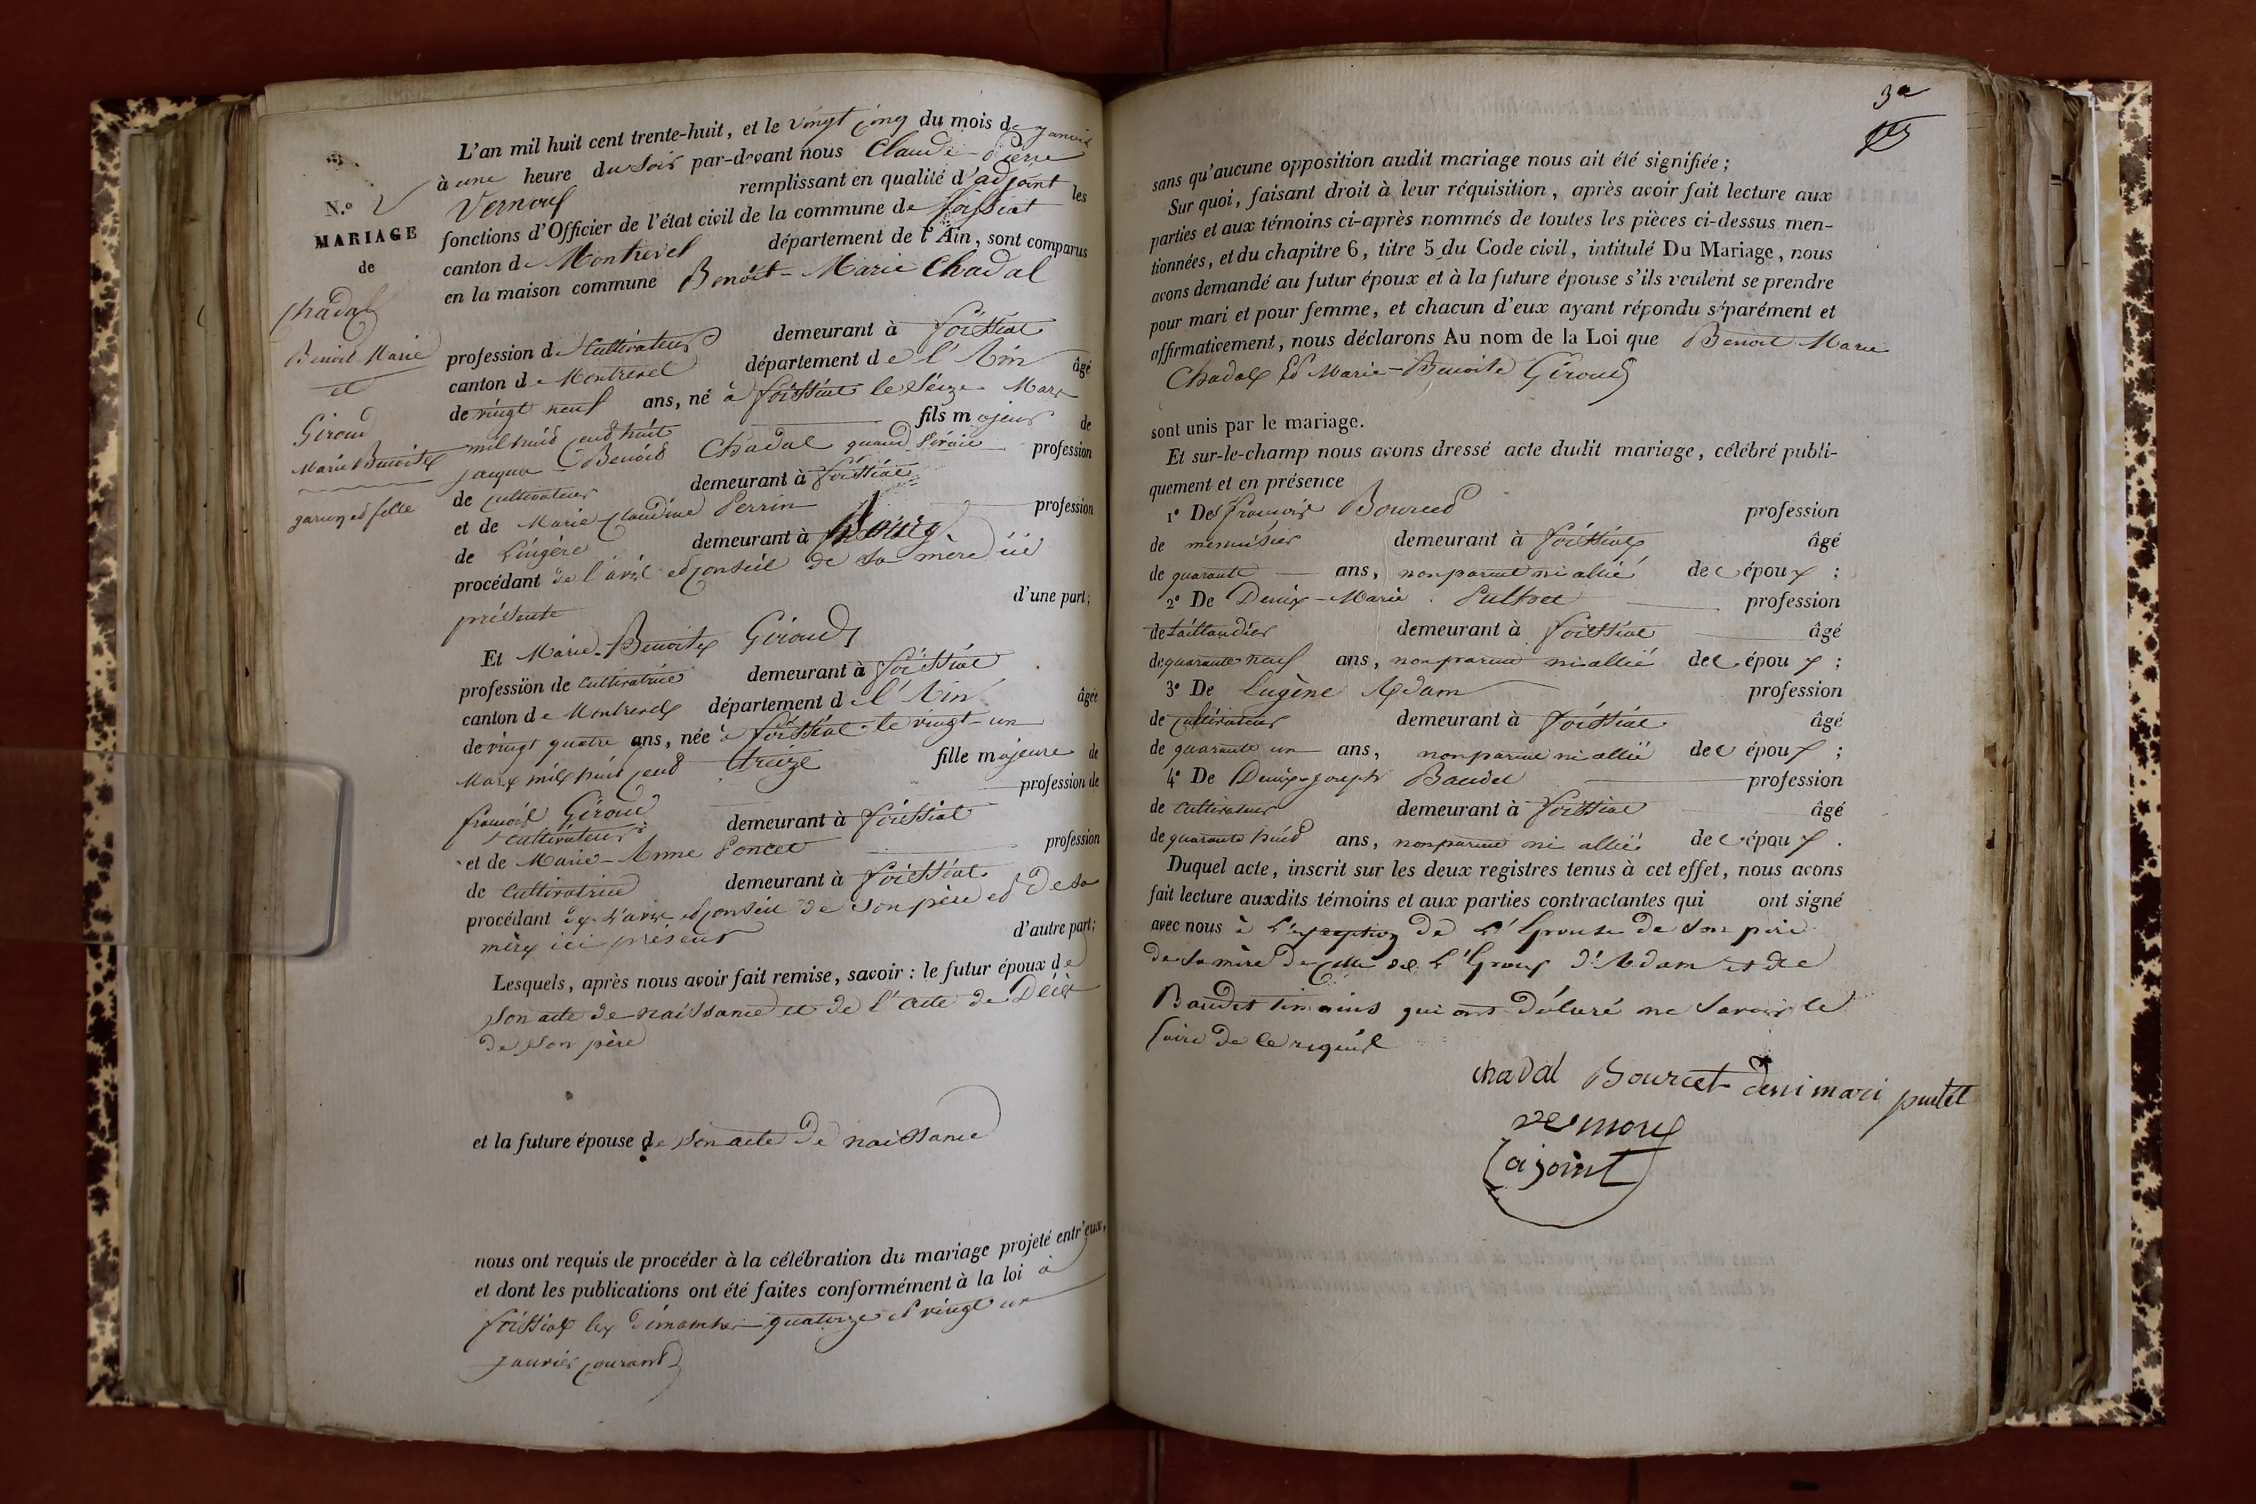 N.º
MARIAGE
de
Chadal
Benoit Marie
et
Giroud
Marie Benoite
garçon et fille
L'an mil huit cent trente-huit, et le vingt cinq du mois de janvier
à une heure du soir par-devant nous Claude-Pierre
remplissant en qualité d'adjoint les
fonctions d'Officier de l'état civil de la commune de foissiat
canton de Montrevel département de l'Ain, sont comparus
en la maison commune Benoit-Marie Chadal
profession de Cultivateur demeurant à foissiat
canton de Montrevel département de l'Ain âgé
de vingt neuf ans, né à foissiat le seize Mars
mil huit cent huit fils majeur de
jacques Benoit Chadal quand vivait profession
de cultivateur demeurant à foissiat
et de Marie Claudine Perrin profession
de Lingère demeurant à Bourg
procédant de l'avis et conseil de sa mère ici
présente d'une part;
Et Marie-Benoite Giroud
profession de cultivatrice demeurant à foissiat
canton de Montrevel département de l'Ain âgée
de vingt quatre ans, née à foissiat le vingt-un
Mars mil huit cent treize fille majeure de
françois Giroud profession de
cultivateur demeurant à foissiat
et de Marie-Anne Poncet profession
de Cultivatrice demeurant à foissiat
procédant de l'avis et conseil de son père et de sa
mère ici présens d'autre part;
Lesquels, après nous avoir fait remise, savoir : le futur époux de
son acte de naissance et de l'acte de Décès
de son père
et la future épouse de son acte de naissance
nous ont requis de procéder à la célébration du mariage projeté entr'eux,
et dont les publications ont été faites conformément à la loi à
foissiat les dimanches quatorze et vingt un
janvier courant
sans qu'aucune opposition audit mariage nous ait été signifiée;
Sur quoi, faisant droit à leur réquisition, après avoir fait lecture aux
parties et aux témoins ci-après nommés de toutes les pièces ci-dessus men-
tionnées, et du chapitre 6, titre 5 du Code civil, intitulé Du Mariage, nous
avons demandé au futur époux et à la future épouse s'ils veulent se prendre
pour mari et pour femme, et chacun d'eux ayant répondu séparément et
affirmativement, nous déclarons Au nom de la Loi que Benoit Marie
Chadal Et Marie-Benoite Giroud
sont unis par le mariage.
Et sur-le-champ nous avons dressé acte dudit mariage, célébré publi-
quement et en présence
1º De françois Bourcet profession
de menuisier demeurant à foissiat âgé
de quarante ans, non parent ni allié des époux ;
2º De Denis-Marie Puthet profession
de taillandier demeurant à foissiat âgé
de quarante neuf ans, non parent ni allié des époux ;
3º De Eugène Adam profession
de cultivateur demeurant à foissiat âgé
de quarante un ans, non parent ni allié des époux ;
4º De Denis-joseph Baudet profession
de cultivateur demeurant à foissiat âgé
de quarante huit ans, non parent ni allié des époux .
Duquel acte, inscrit sur les deux registres tenus à cet effet, nous avons
fait lecture auxdits témoins et aux parties contractantes qui ont signé
avec nous à l'exception de l'Epouse de son père
de sa mère de celle de l'Epoux d'Adam et de
Baudet témoins qui ont déclaré ne savoir le
faire de ce requis
chadal Bourcet deni mari putet
ajoint